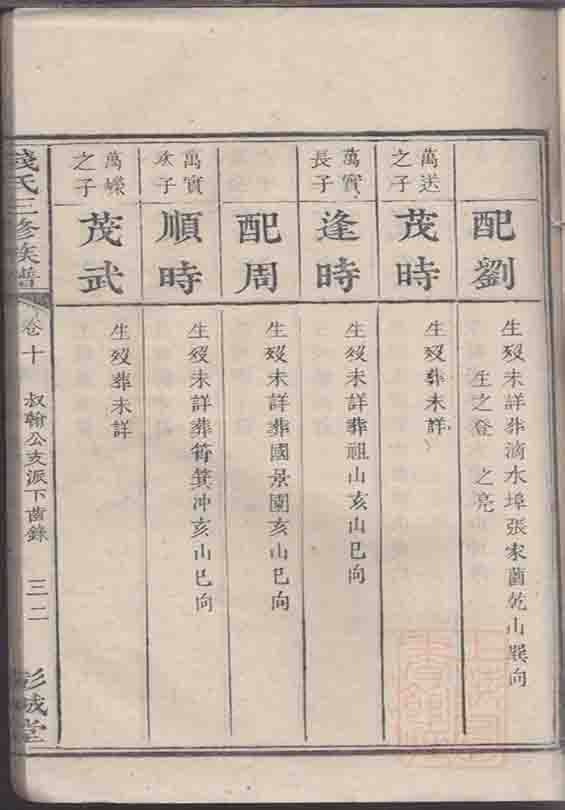 配劉
生歿未詳葬滴水埠張家薗乾山巽向
生之登 之亮
萬送之子
茂時
生歿葬未詳
萬實長子
逢時
生歿未詳葬祖山亥山巳向
配周
生歿未詳葬國景園亥山巳向
萬實次子
順時
生歿未詳葬筲箕冲亥山巳向
萬嶸之子
茂武
生歿葬未詳
錢氏三修族譜
卷十
叔翰公支派下齒錄
三二
彭城堂